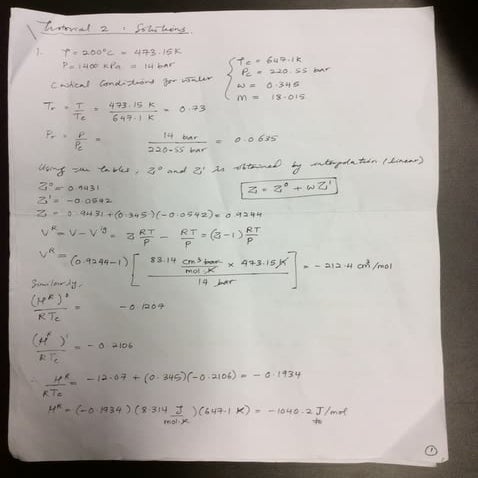 Tutorial 2 : Solutions.
1. T = 200°C = 473.15K
P = 1400 KPa = 14 bar
Critical Conditions for water
{ Tc = 647.1K
Pc = 220.55 bar
ω = 0.345
m = 18.015
Tr = T/Tc = 473.15 K / 647.1 K = 0.73
Pr = P/Pc = 14 bar / 220.55 bar = 0.0635
Using tables, Z⁰ and Z' is obtained by interpolation (linear)
Z⁰ = 0.9431
Z' = -0.0542
Z = Z⁰ + ωZ'
Z = 0.9431 + (0.345)(-0.0542) = 0.9244
V^R = V - V^ig = Z RT/P - RT/P = (Z-1) RT/P
V^R = (0.9244-1) [ 83.14 cm³ bar / mol.K × 473.15K / 14 bar ] = -212.4 cm³/mol
Similarly,
(H^R)⁰ / RTc = -0.1207
(H^R)' / RTc = -0.2106
∴ H^R / RTc = -12.07 + (0.345)(-0.2106) = -0.1934
H^R = (-0.1934)(8.314 J / mol.K)(647.1 K) = -1040.2 J/mol
1